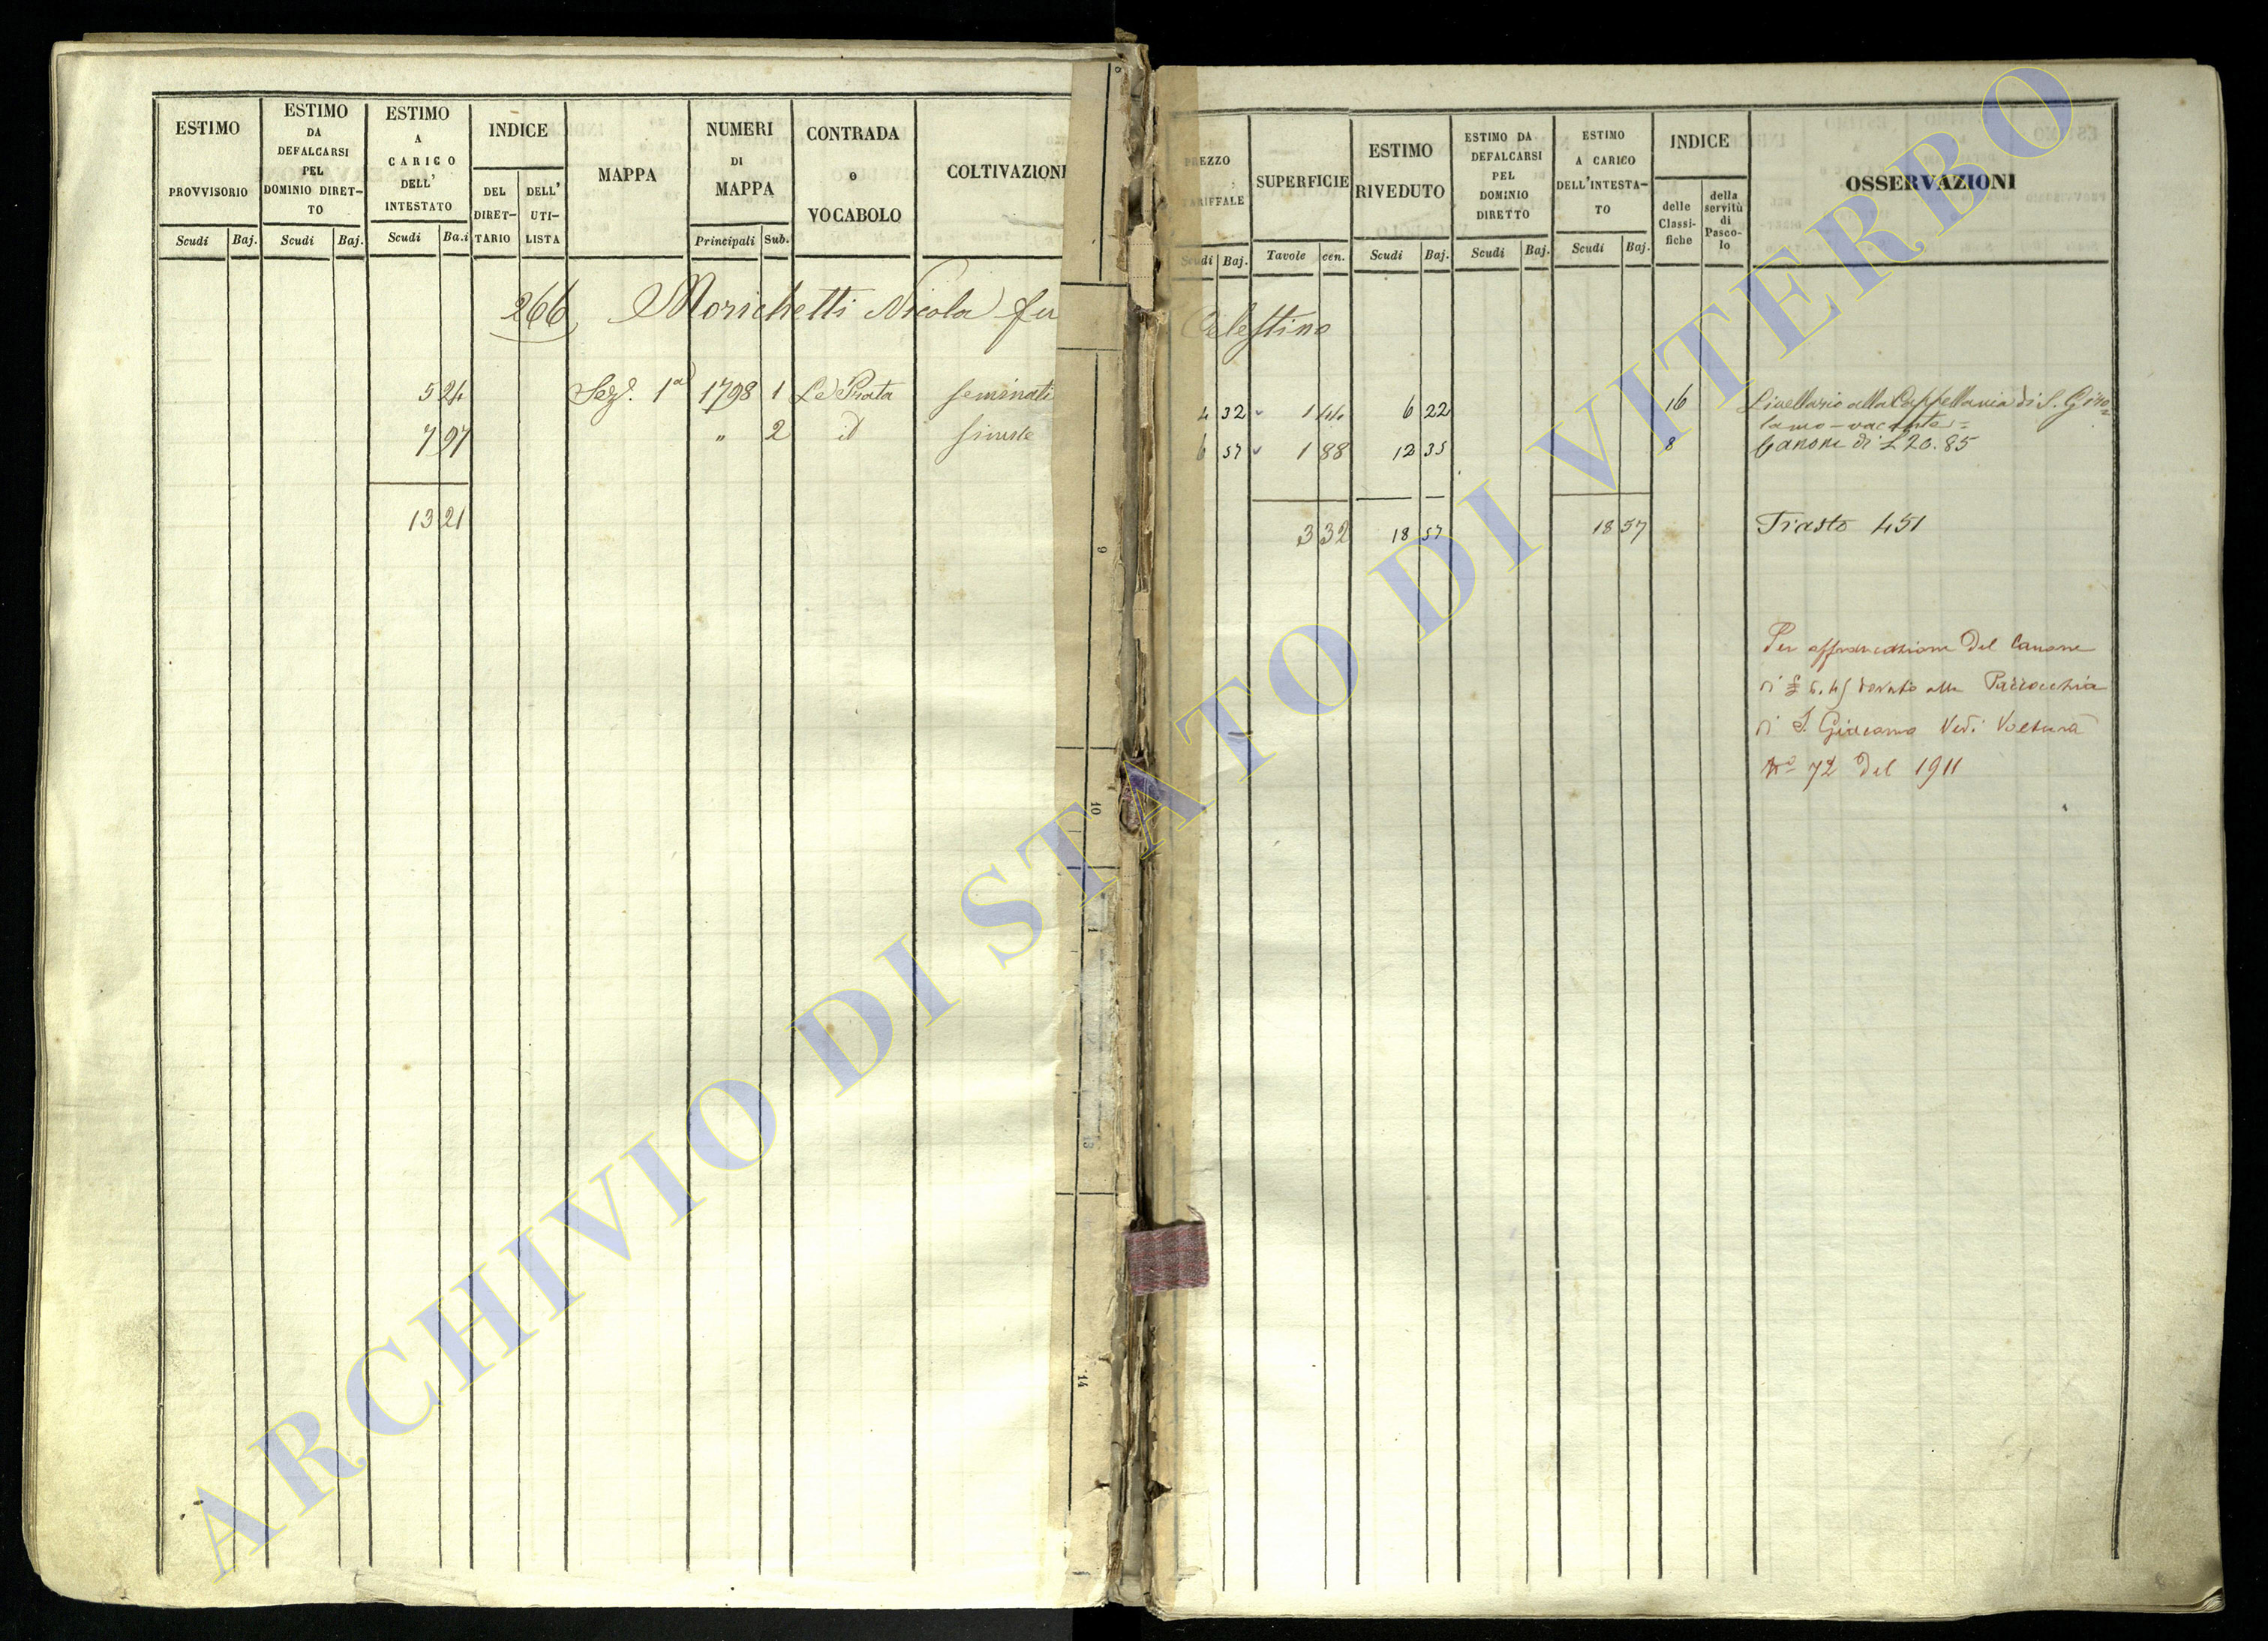 ESTIMO
PROVVISORIO
Scudi Baj.
ESTIMO
DA
DEFALCARSI
PEL
DOMINIO DIRET-
TO
Scudi Baj.
ESTIMO
A
CARICO
DELL'
INTESTATO
Scudi Ba.i
INDICE
DEL
DIRET-
TARIO
DELL'
UTI-
LISTA
MAPPA
NUMERI
DI
MAPPA
Principali Sub.
CONTRADA
o
VOCABOLO
COLTIVAZIONI
266 Morichetti Nicola fu
5 24 Sez. 1a 1798 1 Le Prata seminati
7 97 " 2 id
13 21
9
10
14
PREZZO
TARIFFALE
Scudi Baj.
SUPERFICIE
Tavole cen.
ESTIMO
RIVEDUTO
Scudi Baj.
ESTIMO DA
DEFALCARSI
PEL
DOMINIO
DIRETTO
Scudi Baj.
ESTIMO
A CARICO
DELL'INTESTA-
TO
Scudi Baj.
INDICE
delle
Classi-
fiche
della
servitù
di
Pasco-
lo
OSSERVAZIONI
Celestino
4 32 1 44 6 22 16 Livellario alla Cappellania di S. Giro=
lamo - vacante =
6 57 1 88 12 35 8 Canone di £ 20.85
3 32 18 57 18 57 Trasto 451
Per affrancazione del Canone
di £ 5.45 dovuto alla Parrocchia
di S. Giacomo Vedi Voltura
No 72 del 1911
ARCHIVIO DI STATO DI VITERBO